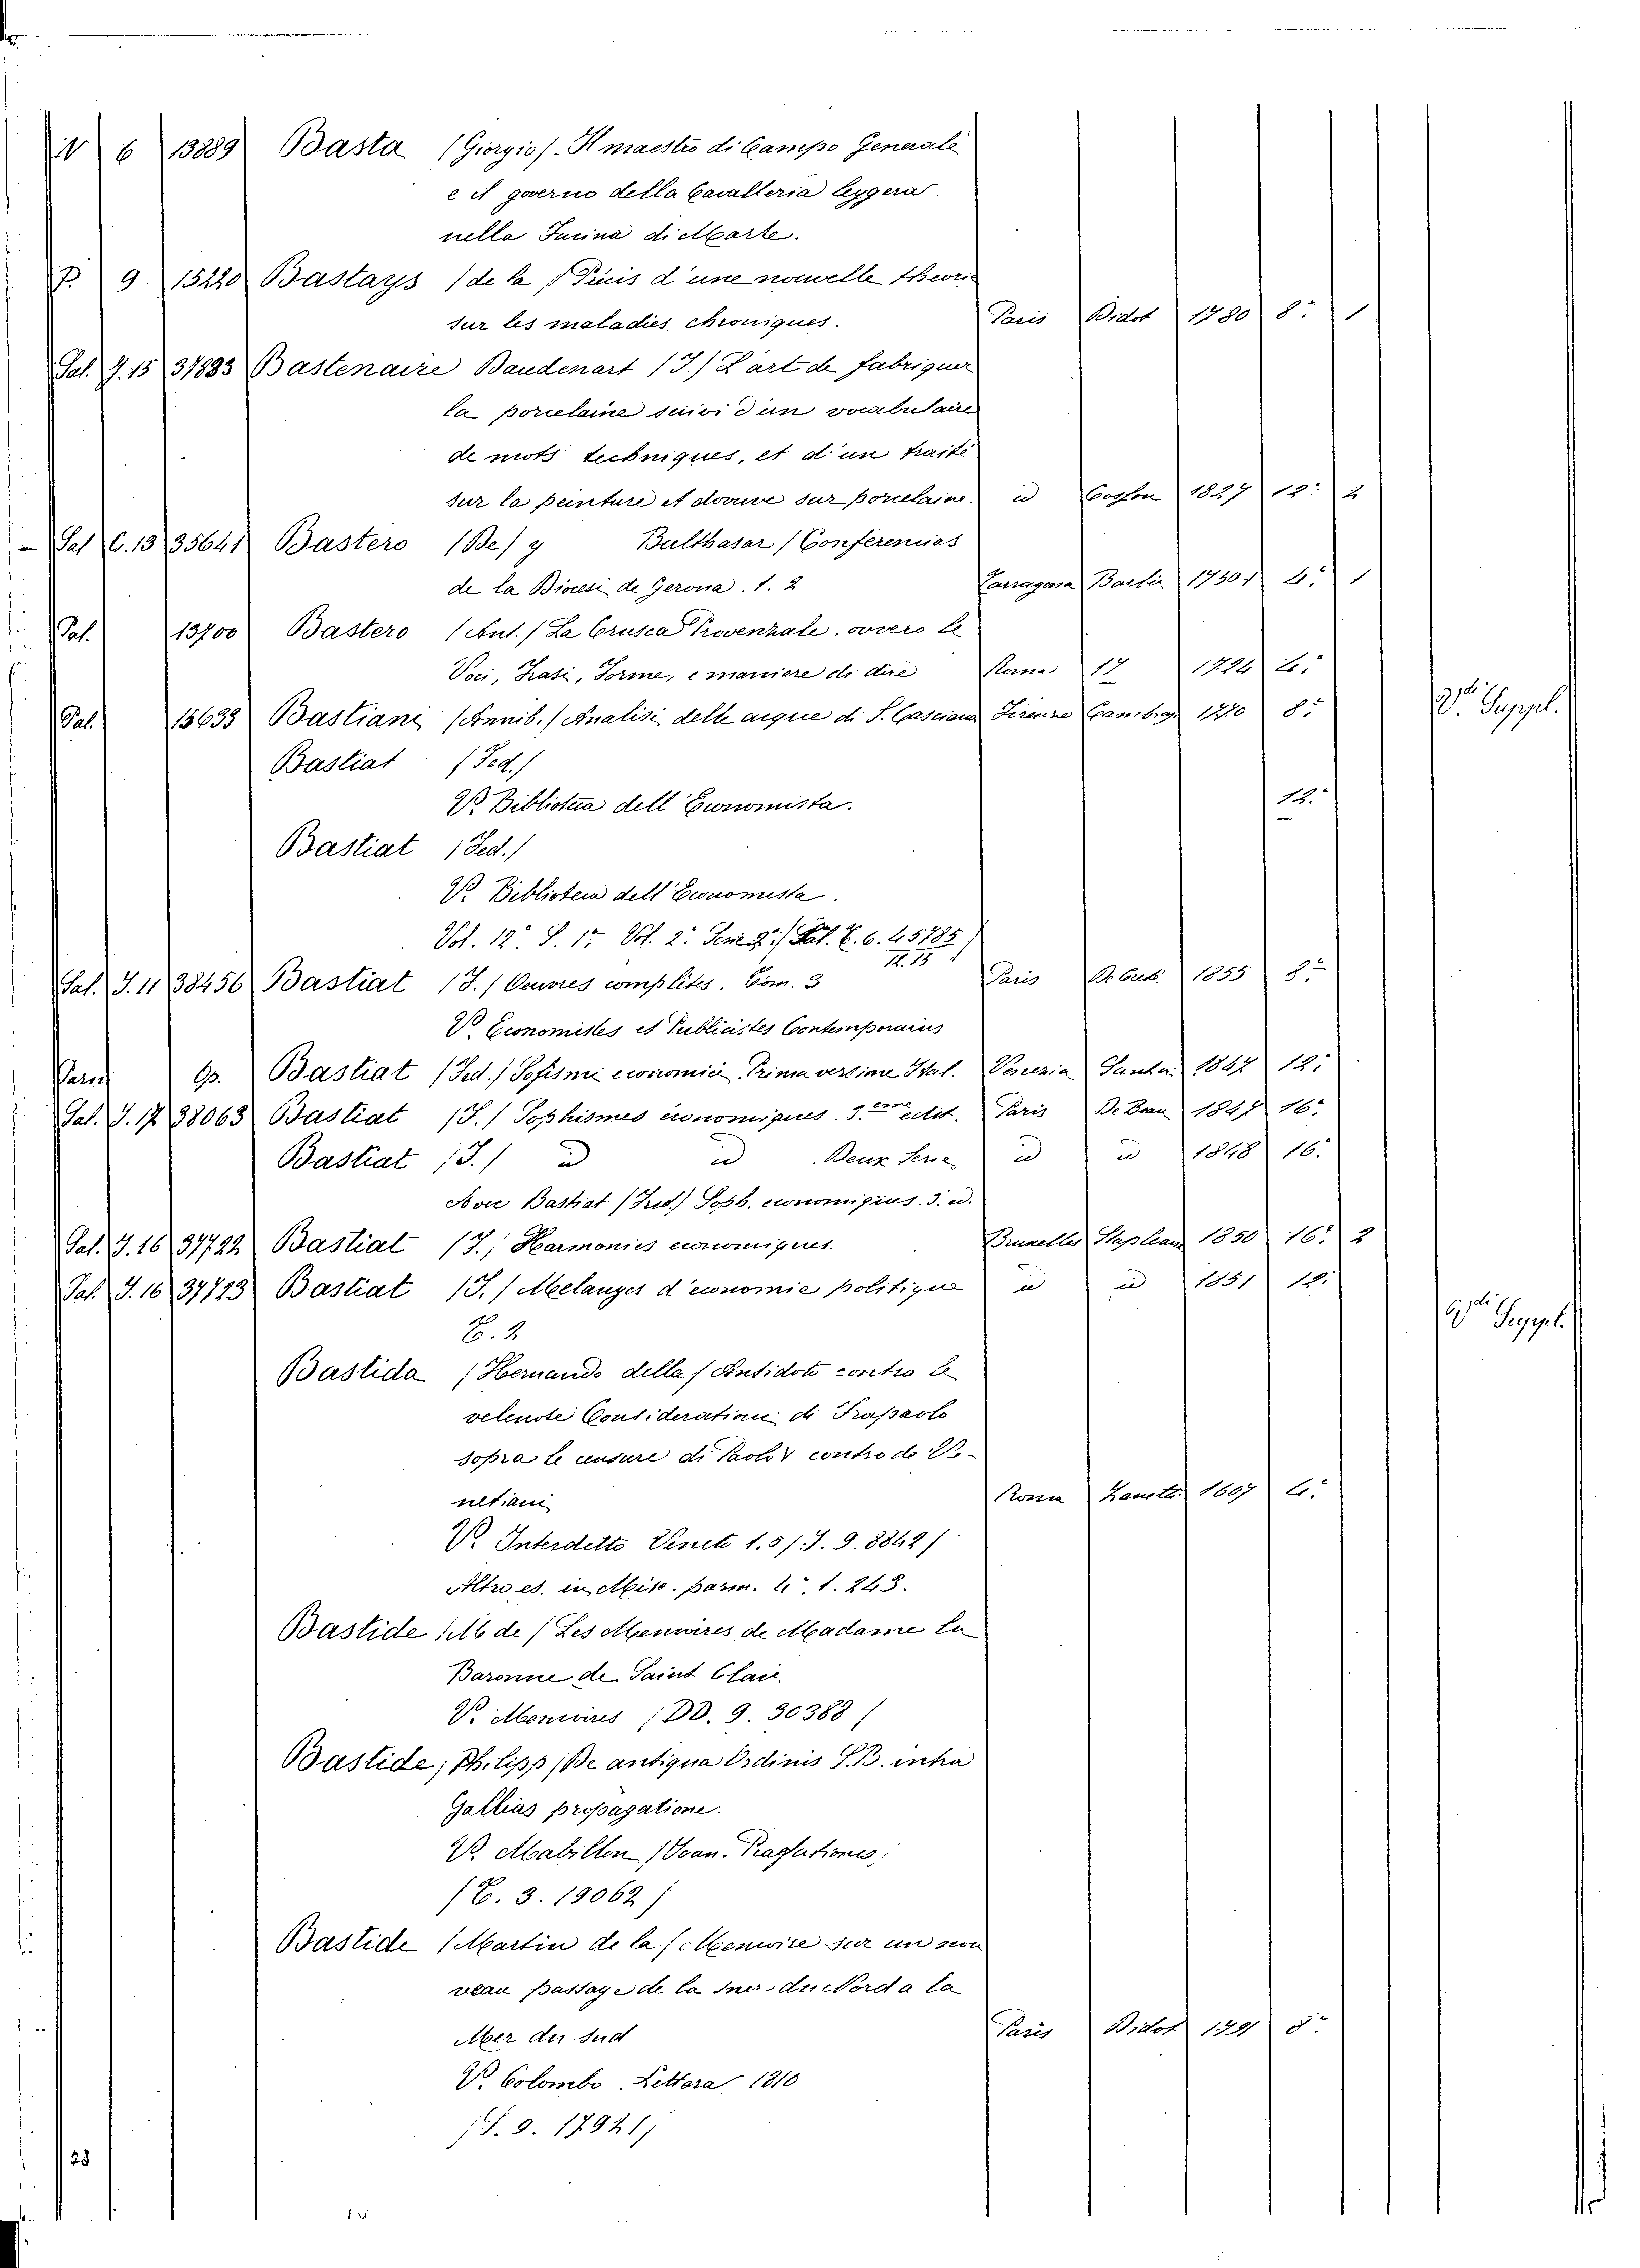 N 6 13889 Basta (Giorgio). Il maestro di Campo Generale
e il governo della Cavalleria leggera.
nella Fucina di Marte.
P. 9. 15220 Bastays (de la) Précis d'une nouvelle theorie
sur les maladies chroniques. Paris Didot 1780 8° 1
Sal. J. 15 31883 Bastenaire Daudenart (F.) L'art de fabriquer
la porcelaine suivi d'un vocabulaire
de mots techniques, et d'un traité
sur la peinture et dorure sur porcelaine. id Cosson 1827 12° 2
Sal C. 13 35641 Bastero (De) y Balthasar (Conferencias
de la Diocesi de Gerona. t. 2 Tarragona Barber 1750 4° 1
Sal. 13700 Bastero (Ant.) La Crusca Provenzale, ovvero le
Voci, Frasi, Forme, e maniere di dire Roma 17 1724 4°
Sal. 15633 Bastiani (Annib.) Analisi delle acque di S. Casciano Firenze Cambiagi 1770 8°
V. di Suppl.
Bastiat (Fed.)
V. Biblioteca dell'Economista. 12.
Bastiat (Fed.)
V. Biblioteca dell'Economista.
Vol. 12° S. 1a Vol. 2° Serie 2a (Sal. E. 6. 45785)
12. 15
Sal. J. 11 38456 Bastiat (F.) Oeuvres complètes. Tom. 3 Paris 1855 8°
V. Economistes et Publicistes Contemporains
Parm Op. Bastiat (Fed.) Sofismi economici. Prima versione Ital. Venezia Santini 1847 12°
Sal. J. 17 38063 Bastiat (F.) Sophismes économiques. 3.eme edit. Paris 1847 16°
Bastiat (F.) id id Deux Serie id id 1848 16.
Bastiat (Fred.) Soph. economiques. 3. ed.
Sal. J. 16 37722 Bastiat (F.) Harmonies economiques. Bruxelles Stapleaux 1850 16° 2
Sal. J. 16 37723 Bastiat (F.) Melanges d'economie politique id id 1851 12°
T. 2
V. di Suppl.
Bastida (Hernando della) Antidoto contra le
velenose Considerationi di Frapaolo
sopra le censure di Paolo V contro de Ve-
netiani Roma Zanetti 1607 4°
V. Interdetto Veneto t. 5 (J. 9. 8842)
Altro es. in Misc. parm. 4° t. 243.
Bastide (M. de) Les Memoires de Madame la
Baronne de Saint Clair.
V. Memoires (DD. 9. 30388)
Bastide (Philipp) De antiqua Ordinis S.B. intra
Gallias propagatione.
V. Mabillon (Joan. Praefationes.
(E. 3. 19062)
Bastide (Martin de la) Memoire sur un nou
veau passage de la mer du Nord a la
Mer du Sud Paris Didot 1791 8°
V. Colombo. Lettera 1810
(S. 9. 17921)
23